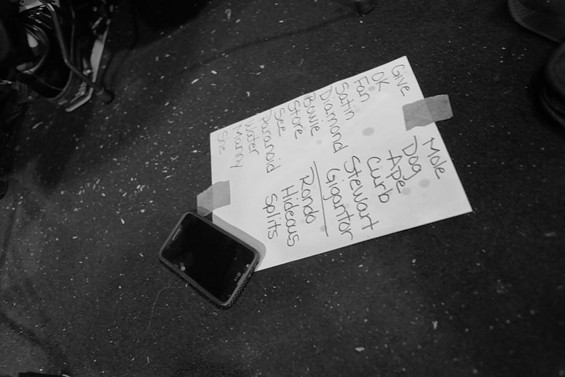 Give
OK
Fan
Satin
Diamond
Bowie
Store
See
Paranoid
Water
Manny
One
Mole
Dog
Ape
Curb
Stewart
Gigantor
Rondo
Hideous
Splits